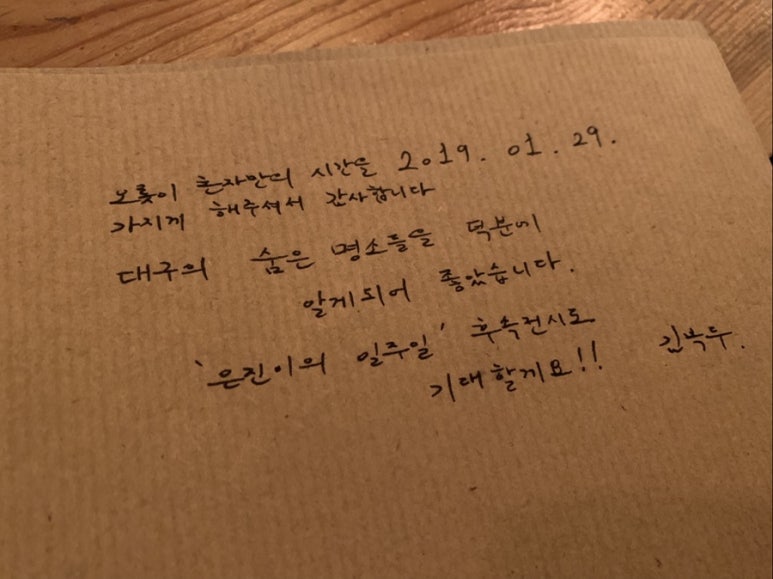 오롯이 혼자만의 시간을 2019. 01. 29.
가지게 해주셔서 감사합니다
대구의 숨은 명소들을 덕분에
알게되어 좋았습니다.
'은진이의 일주일' 후속전시도
기대할께요!! 김복두.